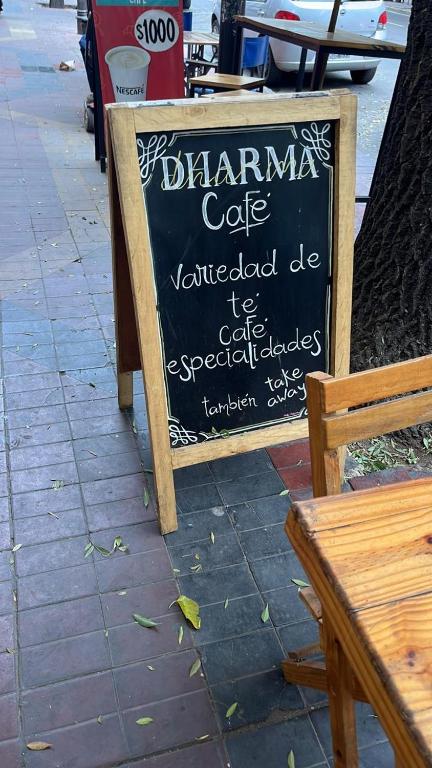 CAFÉ
$1000
NESCAFÉ
DHARMA
Café
Variedad de
té
Café
especialidades
también take
away